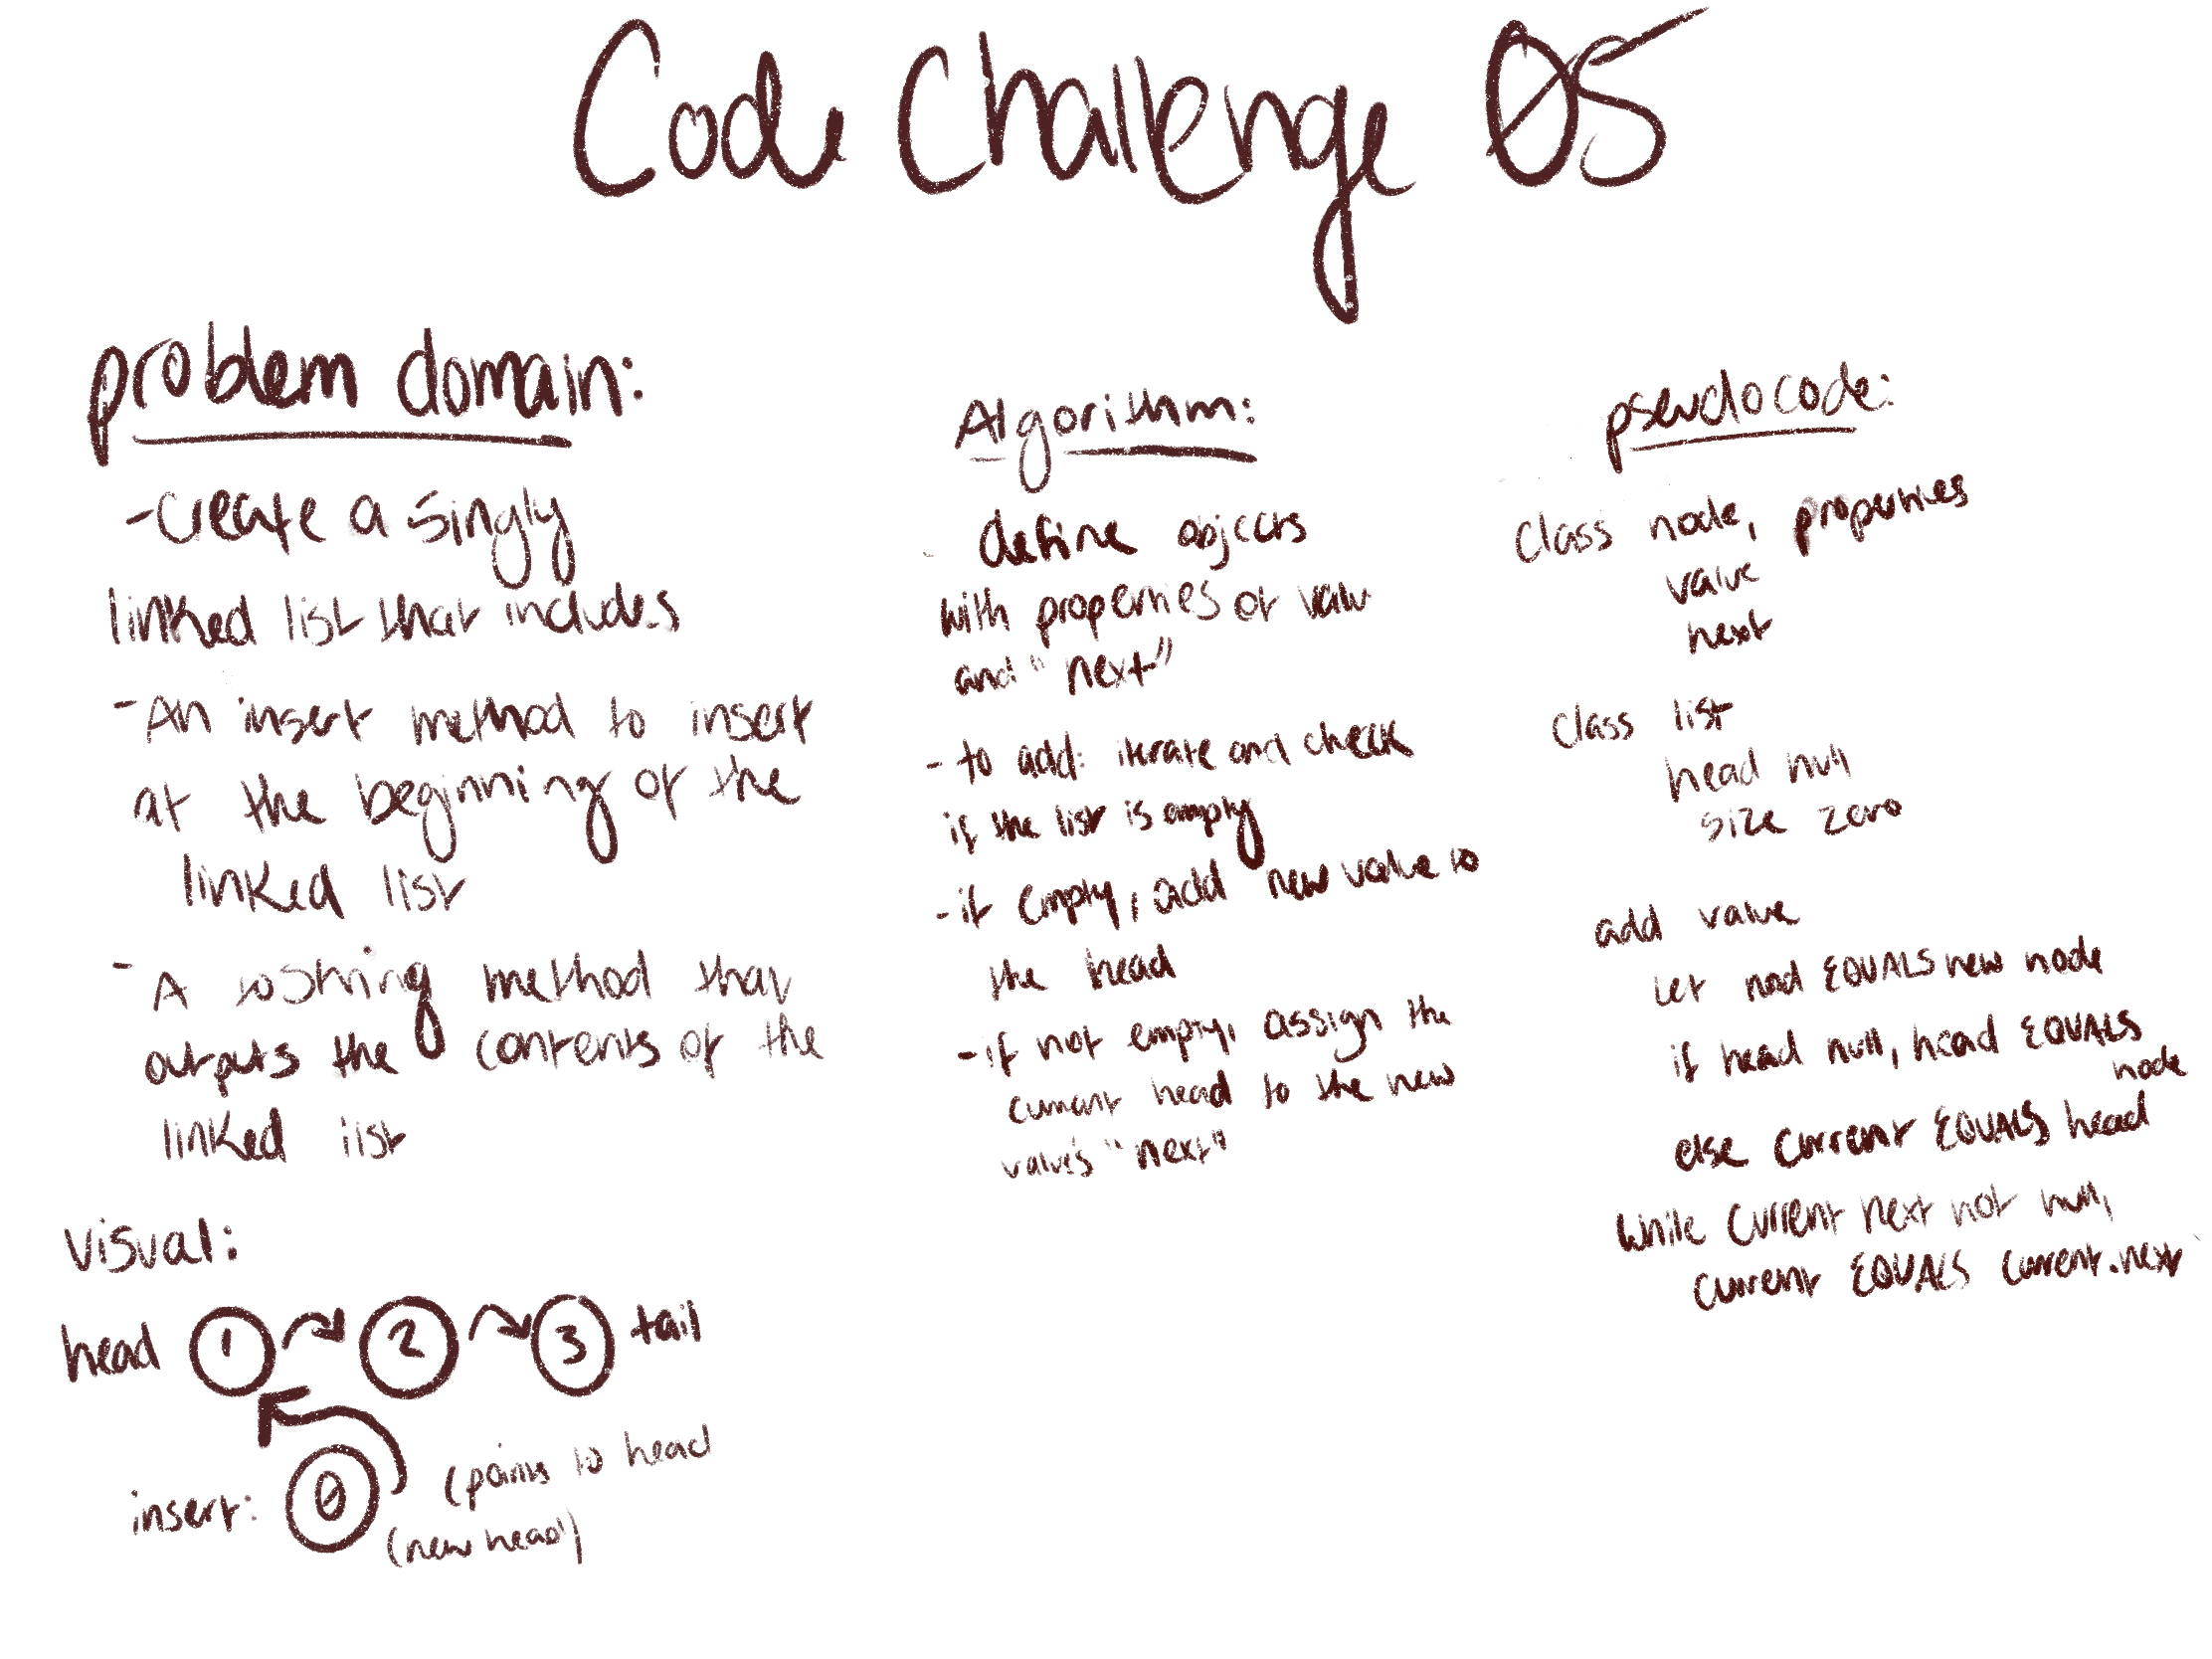 Code Challenge 05
problem domain:
- Create a singly
linked list that includes
- An insert method to insert
at the beginning of the
linked list
- A toString method that
outputs the contents of the
linked list
visual:
head 1 2 3 tail
insert: 0 (points to head
(new head)
Algorithm:
- define objects
with properties of value
and "next"
- to add: iterate and check
if the list is empty
- if empty, add new value to
the head
- if not empty, assign the
current head to the new
value's "next"
pseudocode:
Class node, properties
value
next
class list
head null
size zero
add value
Let nod EQUALS new node
if head null, head EQUALS
node
else current EQUALS head
While current next not null,
current EQUALS current.next